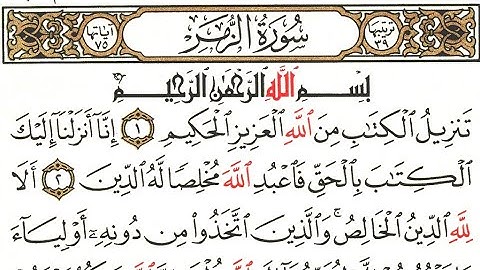 ترتيبها ٣٩ سُورَةُ الزُّمَرِ آياتها ٧٥
بِسْمِ اللَّهِ الرَّحْمَٰنِ الرَّحِيمِ
تَنزِيلُ الْكِتَٰبِ مِنَ اللَّهِ الْعَزِيزِ الْحَكِيمِ ١ إِنَّآ أَنزَلْنَآ إِلَيْكَ
الْكِتَٰبَ بِالْحَقِّ فَاعْبُدِ اللَّهَ مُخْلِصًا لَّهُ الدِّينَ ٢ أَلَا
لِلَّهِ الدِّينُ الْخَالِصُ ۚ وَالَّذِينَ اتَّخَذُوا مِن دُونِهِۦٓ أَوْلِيَآءَ